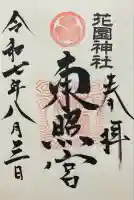 奉拝
花園神社
東照宮
令和七年八月三日